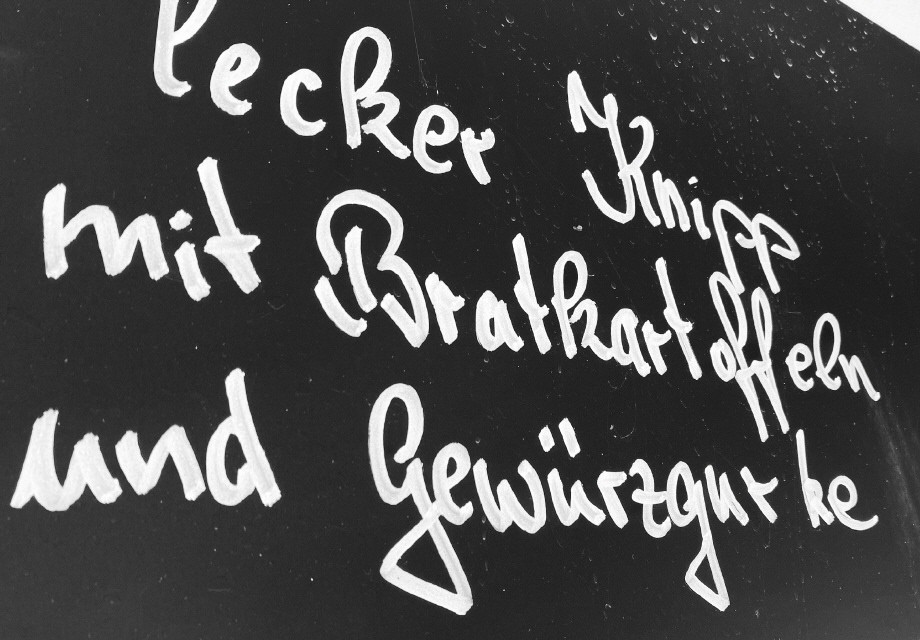 lecker Knipp
mit Bratkartoffeln
und Gewürzgurke